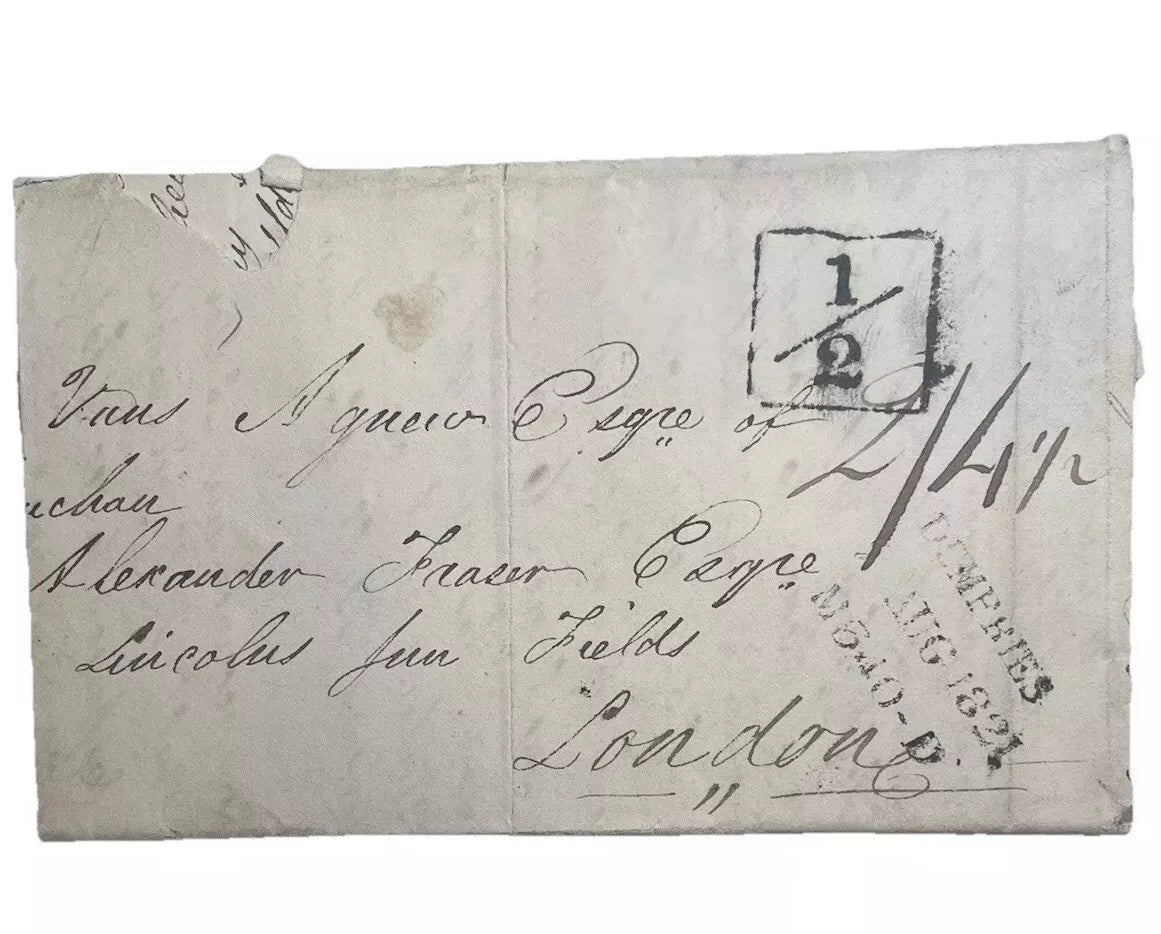 1/2
Vans Agnew Esqre of
uchan
2/4 1/2
Alexander Fraser Esqre
Lincolns Inn Fields
London
DUMFRIES
AUG 1821